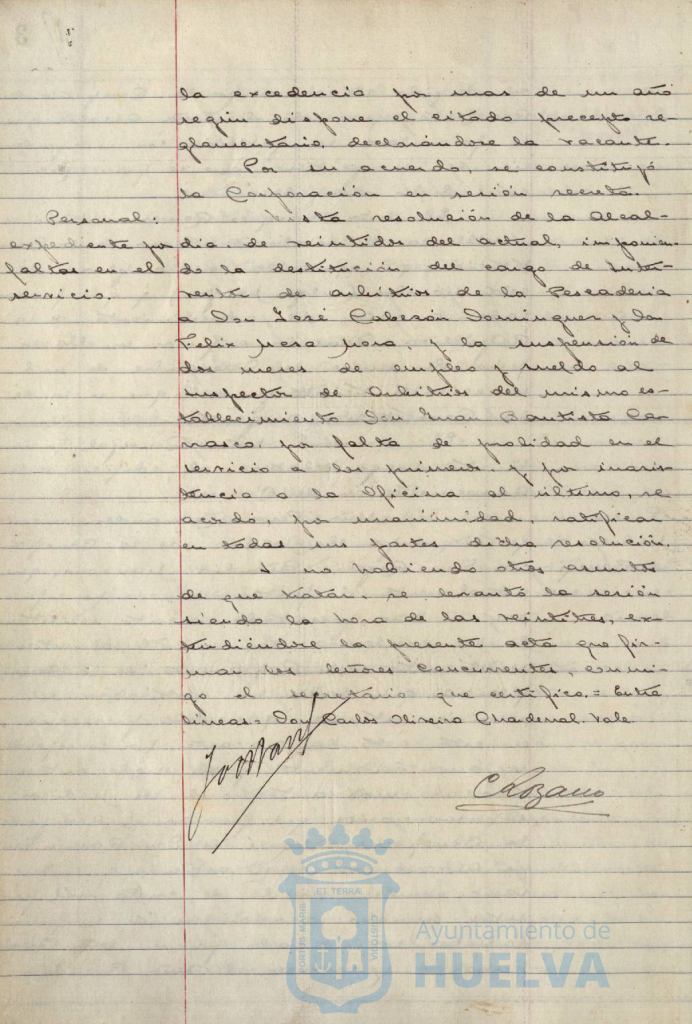 la excedencia por mas de un año
según dispone el citado precepto re-
glamentario, declarándose la vacante.
Por su acuerdo, se constituyó
la Corporación en sesión secreta.
Personal:
expediente por
faltas en el
servicio.
Vista resolución de la Alcal-
dia, de veintidos del actual, imponien-
do la destitución del cargo de Inter-
ventor de arbitrios de la Pescaderia
a Don José Cabezón Dominguez y Don
Felix Mesa Mora, y la suspensión de
dos meses de empleo y sueldo al
Inspector de Arbitrios del mismo es-
tablecimiento Don Juan Bautista Ca-
rrasco, por falta de probidad en el
servicio a los primeros y por inasis-
tencia a la Oficina al último, se
acordó, por unanimidad, ratificar
en todas sus partes dicha resolución.
Y no habiendo otros asuntos
de que tratar, se levantó la sesión
siendo la hora de las veintitres, ex-
tendiéndose la presente acta que fir-
man los señores concurrentes, conmi-
go el secretario que certifico.= Entre
lineas= Don Carlos Oliveira Chardenal. Vale
C Lozano
PORTUS MARIS
ET TERRAE
CUSTODIA
Ayuntamiento de
HUELVA